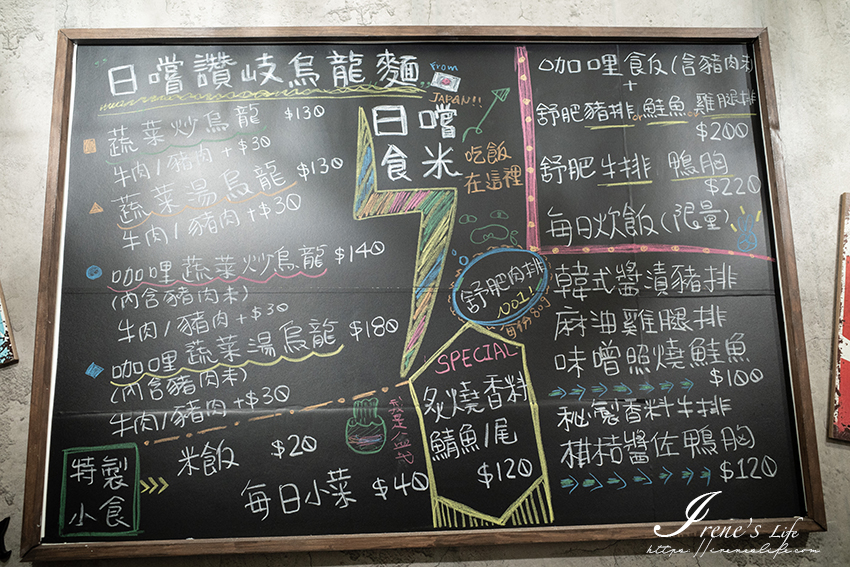 日嚐讚岐烏龍麵
From
JAPAN!!
蔬菜炒烏龍 $130
牛肉/豬肉+$30
蔬菜湯烏龍 $130
牛肉/豬肉+$30
咖哩蔬菜炒烏龍 $140
(內含豬肉末)
牛肉/豬肉+$30
咖哩蔬菜湯烏龍 $180
(內含豬肉末)
牛肉/豬肉+$30
特製
小食
米飯 $20
每日小菜 $40
日嚐
食米
吃飯
在這裡
咖哩食飯(含豬肉末)
+
舒肥豬排or鮭魚or雞腿排
$200
舒肥牛排 鴨胸
$220
每日炊飯(限量)
舒肥肉排
NO1!
每份80g
韓式醬漬豬排
麻油雞腿排
味噌照燒鮭魚
$100
秘製香料牛排
柑桔醬佐鴨胸
$120
SPECIAL
炙燒香料
鯖魚/尾
$120
我是盆栽
Irene's Life
https://irenelife.com